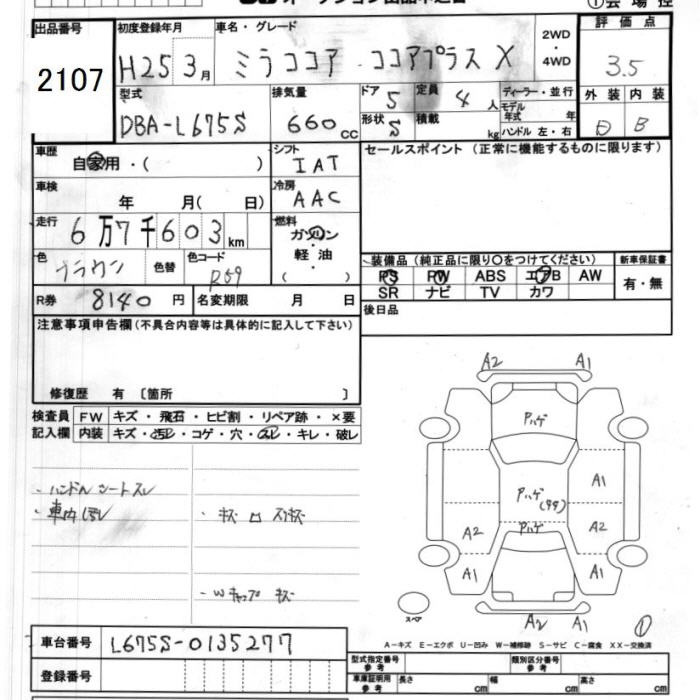 オークション出品申込書
①会場控
出品番号 初度登録年月 車名・グレード 2WD ・ 4WD 評価点
2107 H25 3月 ミラココア ココアプラス X 3.5
型式 排気量 ドア 5 定員 4人 ディーラー・並行 外装 内装
DBA-L675S 660cc 形状 S 積載 kg モデル年式 年 D B
ハンドル 左・右
車歴 自家用・( ) シフト IAT セールスポイント (正常に機能するものに限ります)
車検 年 月( 日) 冷房 AAC
走行 6万7千603km 燃料 ガソリン・軽油・( )
色 ブラウン 色替 色コード R59
装備品(純正品に限り〇をつけてください) 新車保証書
PS PW ABS エアB AW 有・無
SR ナビ TV カワ
R券 8140円 名変期限 月 日 後日品
注意事項申告欄(不具合内容等は具体的に記入して下さい)
修復歴 有 〔箇所 〕
検査員 FW キズ・飛石・ヒビ割・リペア跡・×要
記入欄 内装 キズ・汚レ・コゲ・穴・スレ・キレ・破レ
・ハンドル シートスレ
・車内汚レ ・キズ ロ スリキズ
・Wキャップ キズ
A2 A1
Pハゲ
Pハゲ(99) A1
A2 Pハゲ A2
A1 A1
スペア
A2 A1 ①
車台番号 L675S-0135277
A-キズ E-エクボ U-凹み W-補修跡 S-サビ C-腐食 XX-交換済
登録番号 型式指定番号 参考 類別区分番号 参考
車庫証明用 参考 長さ cm 幅 cm 高さ cm